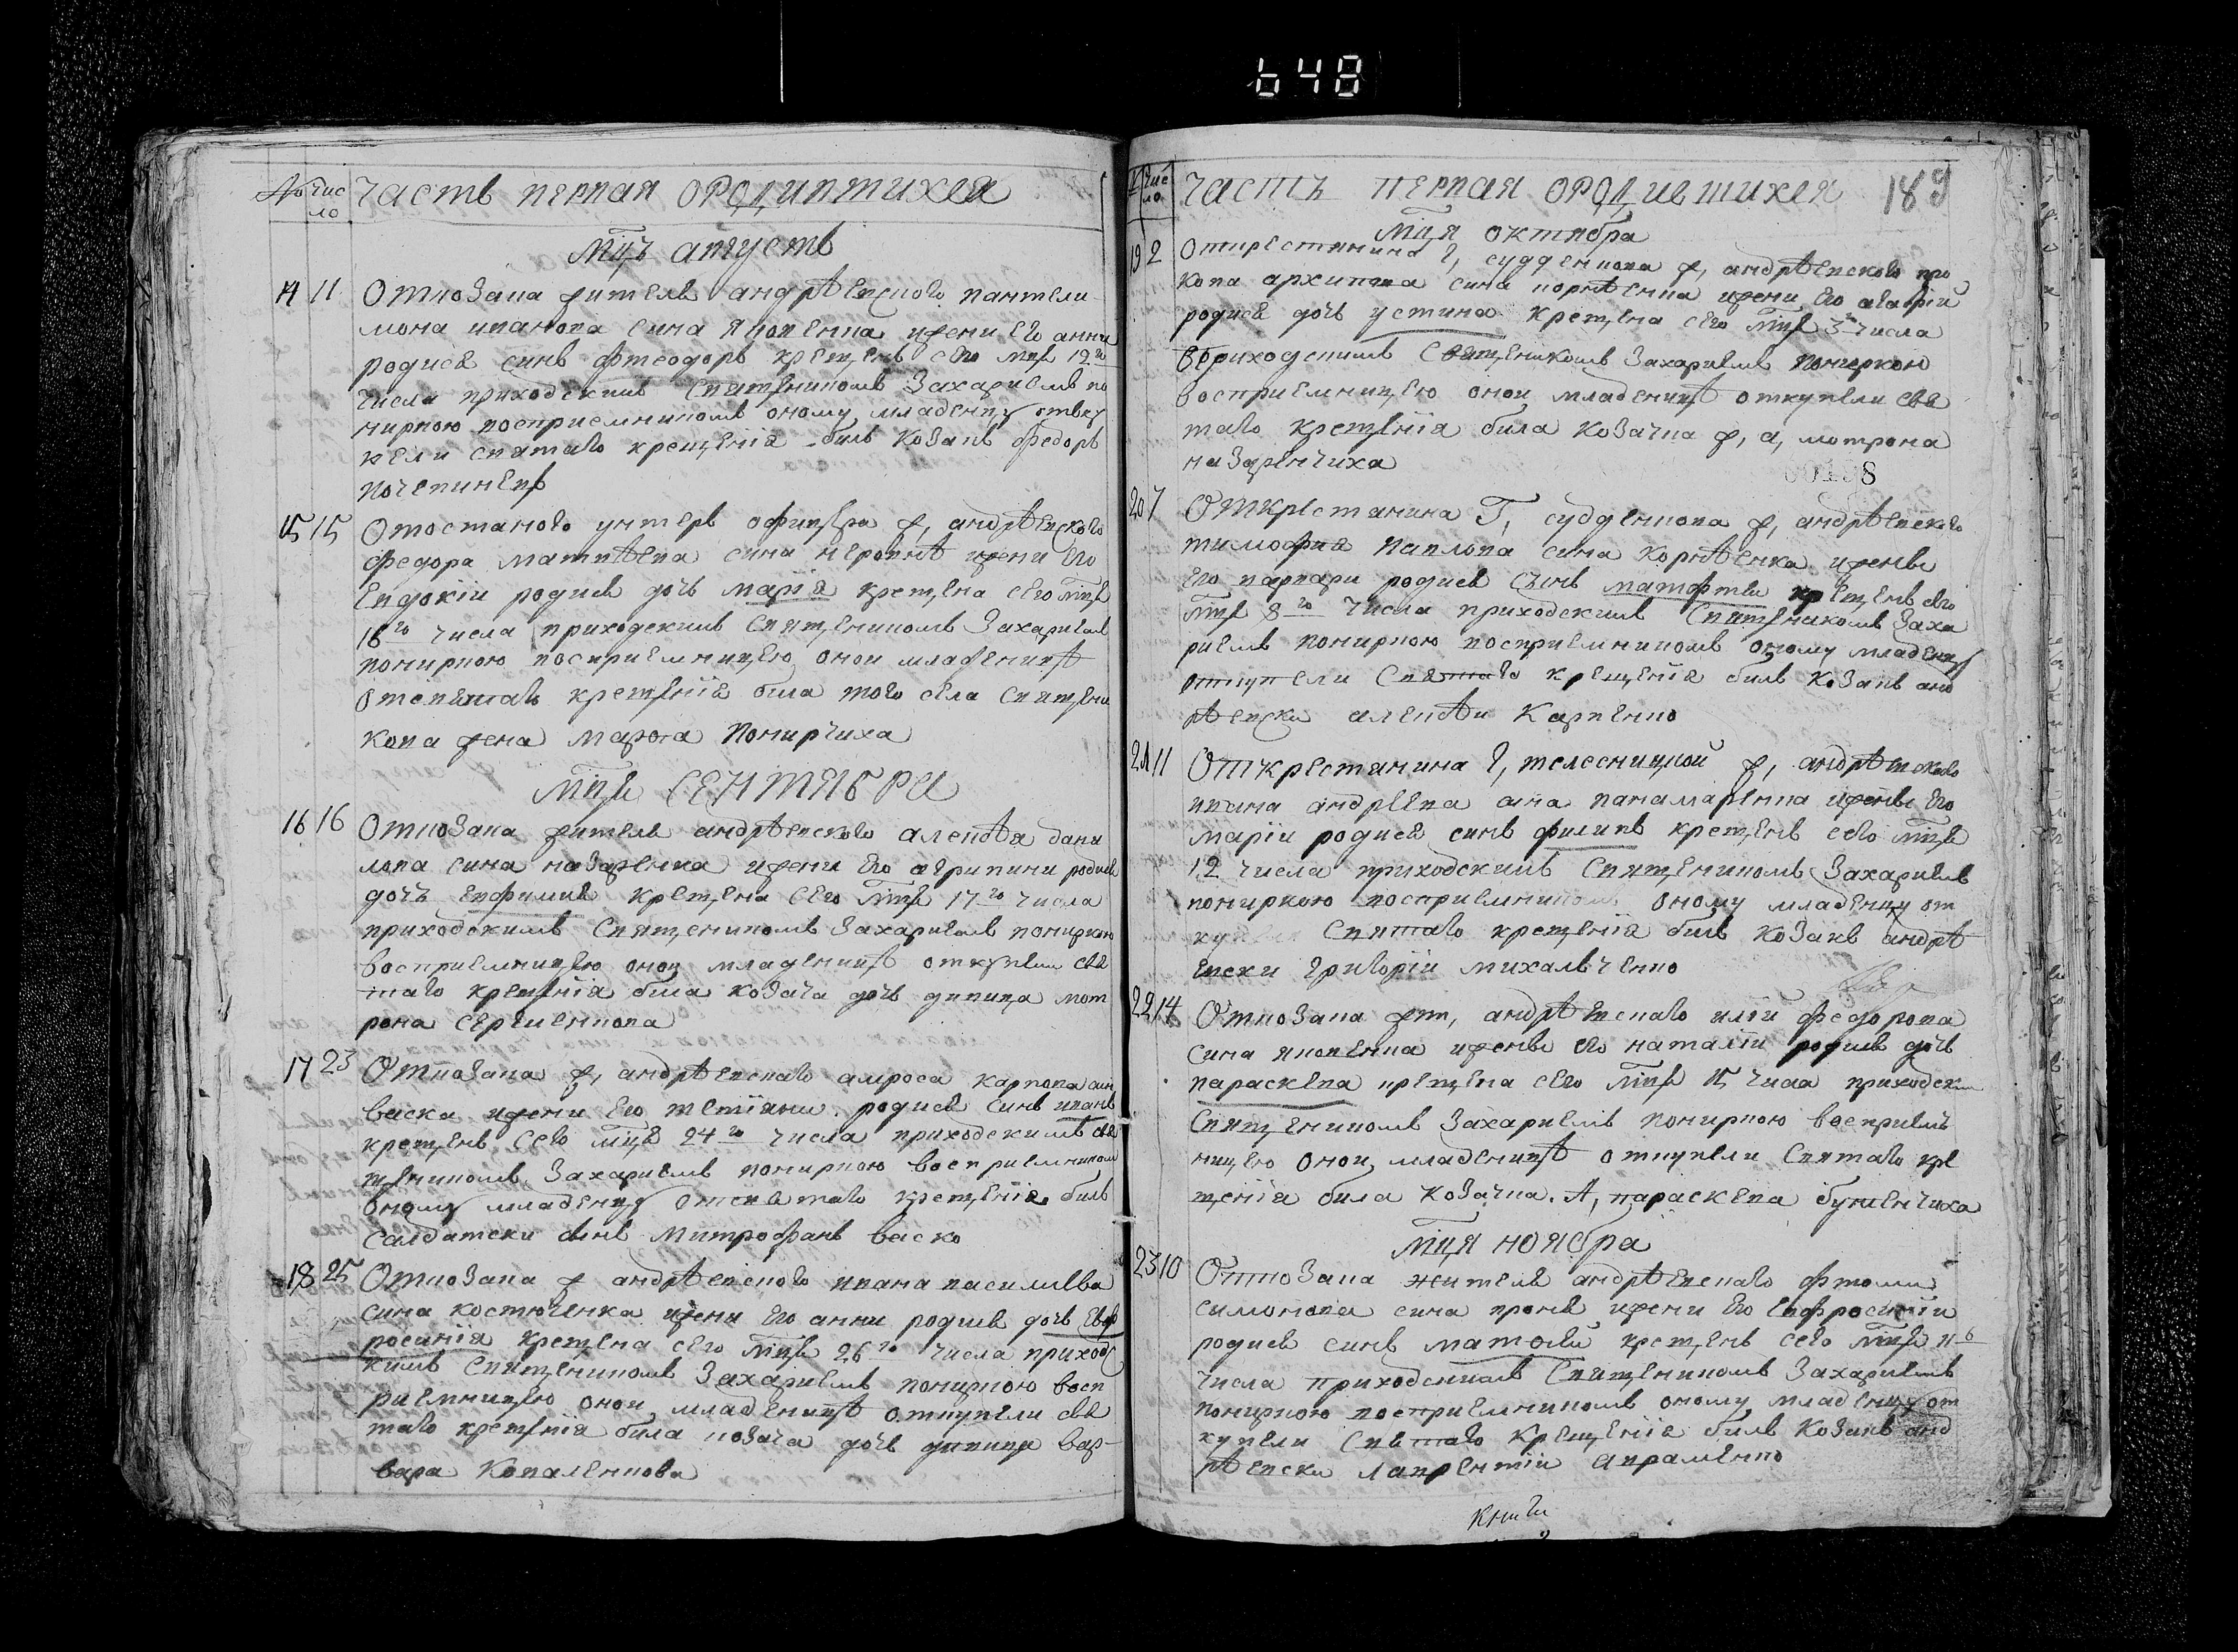 648
№ Чис
ло
Часть первая ородившихся
Мцъ август
14 11 От козака жителя андрѣевского пантели
мона иванова сина яковенка ижени его анни
родися синъ фтеодоръ крещенъ сего мца 12го
числа приходскимъ священикомъ Захариемъ по
ниркою восприемникомъ оному младенцу отку
пели святаго крещенія билъ козакъ федоръ
почепинецъ
15 15 От отставного унтеръ офицера ж, андрѣевского
федора матвѣева сина ижени его
евдокіи родися дочь марія крещена сего мца
16го числа приходскимъ священикомъ Захарием
пониркою восприемницею онои младеницѣ
от святаго крещенія била того села священи
кова жена марфа понирчиха
Мца СЕНТЯБРА
16 16 От козака жителя андрѣевского алексѣя дани
лова сина назаренка ижени его агрипини родися
дочъ евфимия крещена сего мца 17го числа
приходскимъ священикомъ Захариемъ пониркою
восприемницею онои младеницѣ откупели свя
таго крещенія била козача дочь дивица мот
рона сергиенкова
17 23 От козака ж, андрѣевскаго амроса карпова син
васка ижени его тетіяни родися синъ иванъ
крещенъ сего мца 24го числа приходскимъ свя
щеникомъ Захариемъ пониркою восприемником
оному младенцу от святаго крещенія билъ
салдатски синъ митрофанъ васко
18 25 От козака ж андрѣевского ивана василиева
сина костюченка ижени его анни родися дочь евф
росинія крещена сего мца 26го числа приходс
кимъ священикомъ Захариемъ пониркою восп
риемницею онои младеницѣ откупели свя
таго крещенія била козача дочь дивица вар-
вара коваленкова
№ Чис
ло
Часть первая ородившихся 189
Мця октября
19 2 От крестянина г, судденкова ж, андрѣевского про
копа архипова сина корнѣенка ижени его агафіи
родися дочь устина крещена сего мца 3го числа
приходскимъ священикомъ Захариемъ пониркою
восприемницею онои младеницѣ откупели свя
таго крещенія била козачка ж, а, мотрона
назаренчиха
20 7 От крестянина Г, судденкова ж, андрѣевского
тимофия павлова сина корнѣенка иженъ
его варвари родися синъ матфтеи крещенъ сего
мца 8го числа приходскимъ священикомъ Заха
риемъ пониркою восприемникомъ оному младенцу
откупели святаго крещенія билъ козакъ анд
рѣевски алексѣи карпенко
21 11 От крестянина г, телесницкой ж, андрѣевского
ивана андреева сина панамаренка иженъ его
маріи родися синъ филипъ крещенъ сего мца
12 числа приходскимъ священикомъ Захариемъ
пониркою восприемникомъ оному младенцу от
ку святаго крещенія билъ козакъ андрѣ
евски григоріи михальченко
22 14 От козака жит, андрѣевскаго иліи федорова
сина яковенка иженъ его наталіи родися дочь
параскева крещена сего мца 15 числа приходским
священикомъ Захариемъ пониркою восприем
ницею онои младеницѣ откупели святаго кре
щенія била козачка. А, параскева бутенчиха
Мця ноября
23 10 От козака жителя андрѣевскаго фтоми
симонова сина проня ижени его евфросиніи
родися синъ матфеи крещенъ сего мца 11го
числа приходскимъ священикомъ Захариемъ
пониркою восприемникомъ оному младенцу от
купели святаго крещенія билъ козакъ анд
рѣевски лаврентіи авраменко
книги